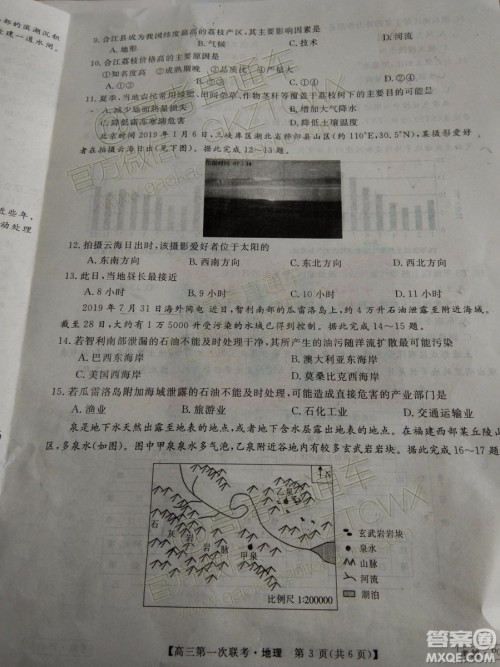 部的滨湖沉积
建一道水闸。
近些年，
动处理
9. 合江县成为我国纬度最高的荔枝产区，其主要影响因素是
A. 地形 B. 气候 C. 技术 D. 河流
10. 合江荔枝价格高的主要原因是
①知名度高 ②成熟期晚 ③品质优 ④产量大
A. ①② B. ②③ C. ③④ D. ①④
11. 夏季，当地农民常用
作物茎秆等覆盖于荔枝树下的主要目的可能是
B. 增加大气降水
C. 降低霜冻寒潮危害 D. 降低土壤温度
北京时间2019年1月6日，三峡库区湖北省秭归县山区(约110°E,30.5°N)，某摄影爱好
者在拍摄云海日出(见下图)。据此完成12～13题。
12. 拍摄云海日出时，该摄影爱好者位于太阳的
A. 东南方向 B. 西南方向 C. 东北方向 D. 西北方向
13. 此日，当地昼长最接近
A. 8小时 B. 9小时 C. 10小时 D. 11小时
2019年7月31日海外网电 近日，智利南部的瓜雷洛岛上，约4万升石油泄露至海域。
截至28日，大约有1万5000升受污染的水域已得到控制。据此完成14～15题。
14. 若智利南部泄漏的石油不能及时处理干净，其产生的油污随洋流扩散最可能污染
A. 巴西东海岸 B. 澳大利亚东海岸
C. 美国西海岸 D. 莫桑比克西海岸
15. 若瓜雷洛岛附加海域泄露的石油不能及时处理，可能造成直接危害的产业部门是
A. 渔业 B. 旅游业 C. 石化工业 D. 交通运输业
泉是地下水天然出露至地表的地点，或者地下含水层露出地表的地点。在福建西部某丘陵山
区，多泉水(如图)。图中甲泉泉水多气泡，乙泉附近谷地内有较多玄武岩岩块。据此完成16～17题
N
乙泉
石
灰
岩
岩
脉
甲泉
比例尺 1:200000
玄武岩岩块
泉水
山脉
河流
湖泊
【高三第一次联考·地理 第3页(共6页)】
答案圈